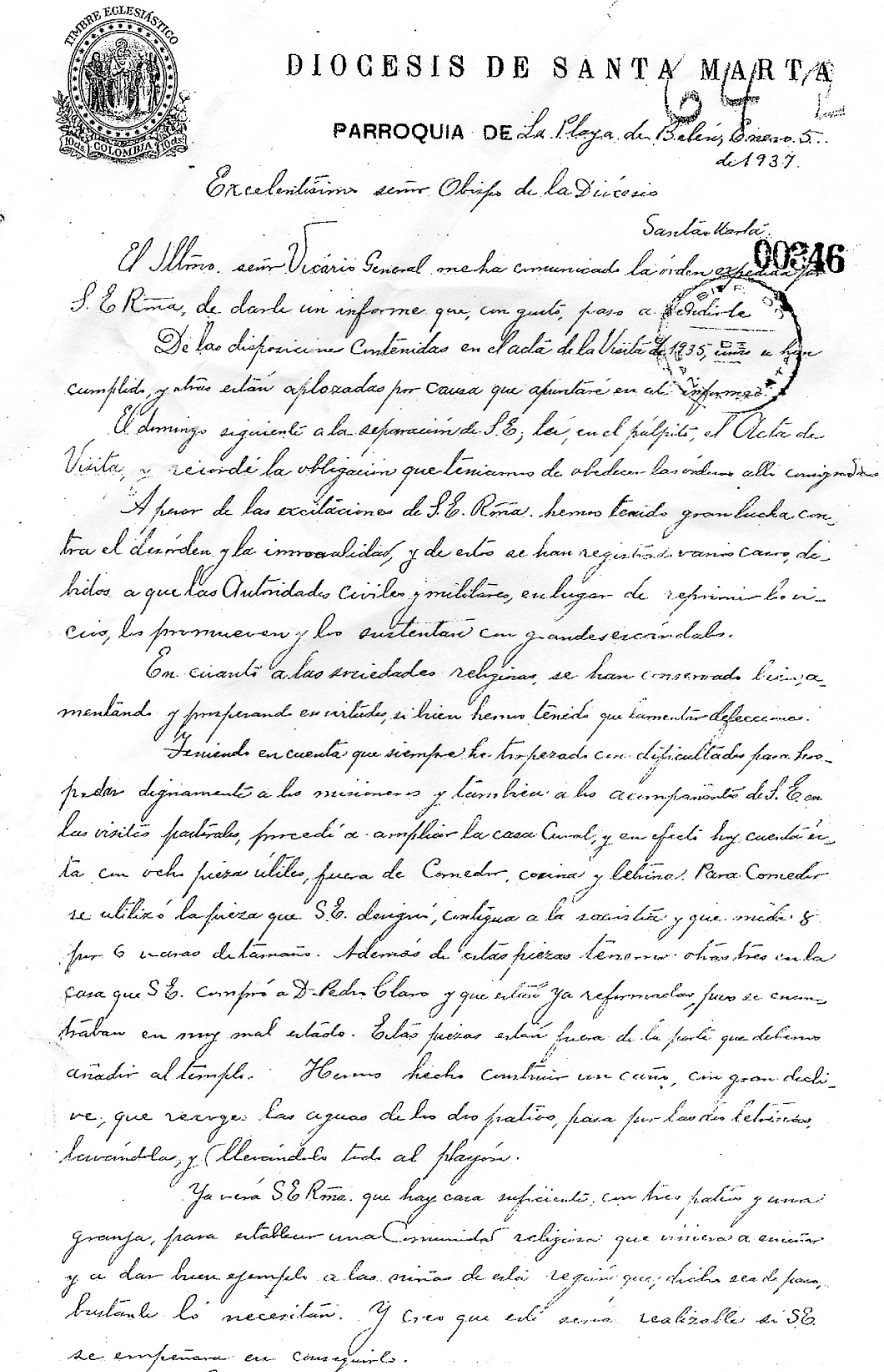 TIMBRE ECLESIÁSTICO
10 cts. COLOMBIA 10 cts.
DIOCESIS DE SANTA MARTA
64
PARROQUIA DE La Playa de Belén, Enero 5
de 1937.
Excelentísimo señor Obispo de la Diócesis
Santa Marta.
00346
El Illmo. señor Vicario General me ha comunicado la orden expedida por
S. E Rma, de darle un informe que, con gusto, paso a rendirle
De las disposiciones contenidas en el acta de la Visita de 1935, unas se han
cumplido, y otras están aplazadas por causa que apuntaré en el informe.
El domingo siguiente a la separación de S. E, leí, en el púlpito, el Acta de
Visita, y recordé la obligación que teníamos de obedecer las órdenes allí consignadas
A pesar de las excitaciones de S. E. Rma. hemos tenido gran lucha con-
tra el desorden y la inmoralidad, y de esto se han registrado varios casos, de-
bidos a que las Autoridades civiles y militares, en lugar de reprimir los vi-
cios, los promueven y los sustentan con grandes escándalos.
En cuanto a las sociedades religiosas, se han conservado bien, a-
mentando y prosperando en virtudes, si bien hemos tenido que lamentar defecciones.
Teniendo en cuenta que siempre he tropezado con dificultades para hos-
pedar dignamente a los misioneros y también a los acompañantes de S. E en
las visitas pastorales, procedí a ampliar la casa Cural, y en efecto hoy cuenta és-
ta con ocho piezas útiles, fuera de Comedor, cocina y letrina. Para Comedor
se utilizó la pieza que S. E. designó, contigua a la sacristía y que mide 8
por 6 varas de tamaño. Además de estas piezas tenemos otras tres en la
casa que S E. compró a D. Pedro Claro y que están ya reformadas, pues se encon-
traban en muy mal estado. Estas piezas están fuera de la parte que debemos
añadir al templo. Hemos hecho construir un caño, con gran decli-
ve, que recoge las aguas de los dos patios, pasa por las dos letrinas,
lavándolas, y llevándolo todo al playón.
Ya verá S E Rma. que hay casa suficiente, con tres patios y una
granja, para establecer una Comunidad religiosa que viniera a enseñar
y a dar buen ejemplo a las niñas de esta región que, dicho sea de paso,
bastante lo necesitan. Y creo que esto sería realizable si S E.
se empeñara en conseguirlo.